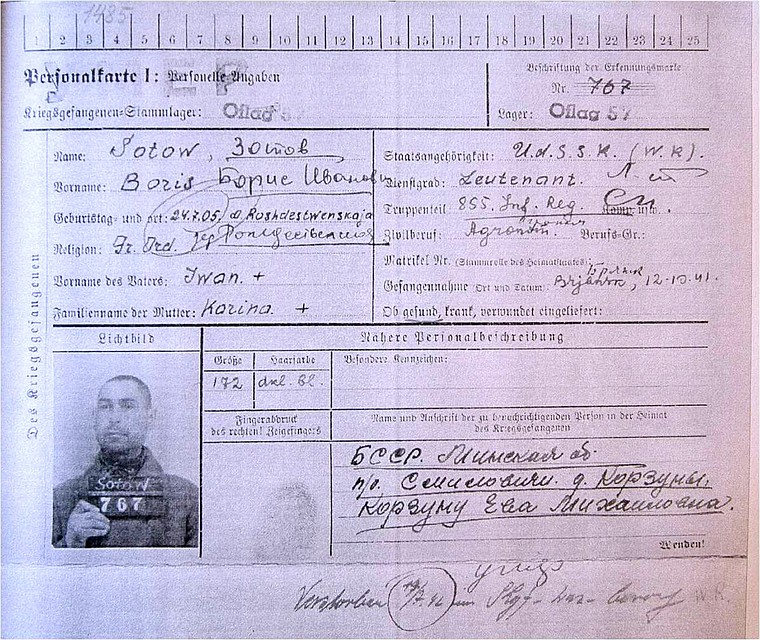 1485
1 2 3 4 5 6 7 8 9 10 11 12 13 14 15 16 17 18 19 20 21 22 23 24 25
Personalkarte I: Personelle Angaben
Beschriftung der Erkennungsmarke
Nr. 767
Kriegsgefangenen-Stammlager: Oflag 57
Lager: Oflag 57
Des Kriegsgefangenen
Name: Sotow, Зотов
Vorname: Boris Борис Иванович
Geburtstag- und ort: 24.7.05, d. Roshdestwenskaja
Religion: Gr. Ord.
Vorname des Vaters: Iwan. +
Familienname der Mutter: Karina. +
Staatsangehörigkeit: U.d.S.S.R. (W.R).
Dienstgrad: Leutenant.
Truppenteil 855. Inf. Reg. Komp. usw.
Zivilberuf: Agronom. Berufs-Gr.:
Matrikel Nr. (Stammrolle des Heimatstaates):
Gefangennahme (Ort und Datum): Brjansk, 12.10.41.
Ob gesund, krank, verwundet eingeliefert:
Lichtbild
Nähere Personalbeschreibung
Größe
Haarfarbe
Besondere Kennzeichen:
172
dkl. bl.
Fingerabdruck
des rechten! Zeigefingers
Name und Anschrift der zu benachrichtigenden Person in der Heimat
des Kriegsgefangenen
БССР. Минская об.
п/о. Смиловичи. д. Корзуны.
Корзуну Ева Михайловна.
Sotow
767
Wenden!
Verstorben
W R